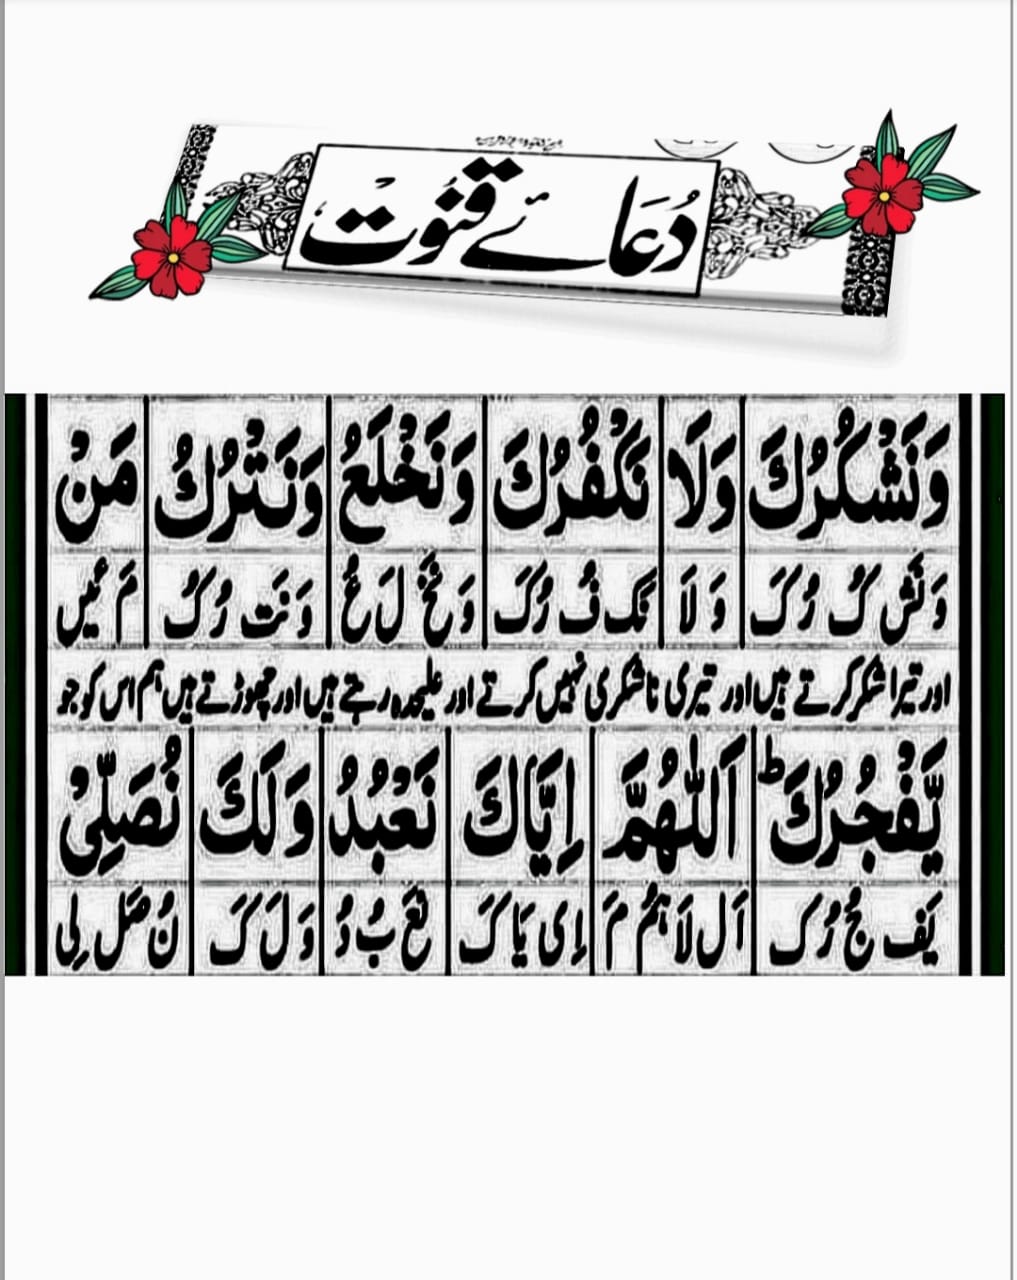 دُعَائے قنُوْت
وَنَشْكُرُكَ وَلَا نَكْفُرُكَ وَنَخْلَعُ وَنَتْرُكُ مَنْ
وَنَش كُ رُ كَ وَ لَا نَك فُ رُ كَ وَ نَخ لَ عُ وَ نَت رُ كُ مَ ئیں
اور تیرا شکر کرتے ہیں اور تیری ناشکری نہیں کرتے اور علیحدہ رہتے ہیں اور چھوڑتے ہیں ہم اس کو جو
يَّفْجُرُكَ ؕ اَللّٰهُمَّ اِيَّاكَ نَعْبُدُ وَلَكَ نُصَلِّىْ
يَف جُ رُ كَ اَل لَا هُم مَ اِی یَا كَ نَع بُ دُ وَ لَ كَ نُ صَل لِی